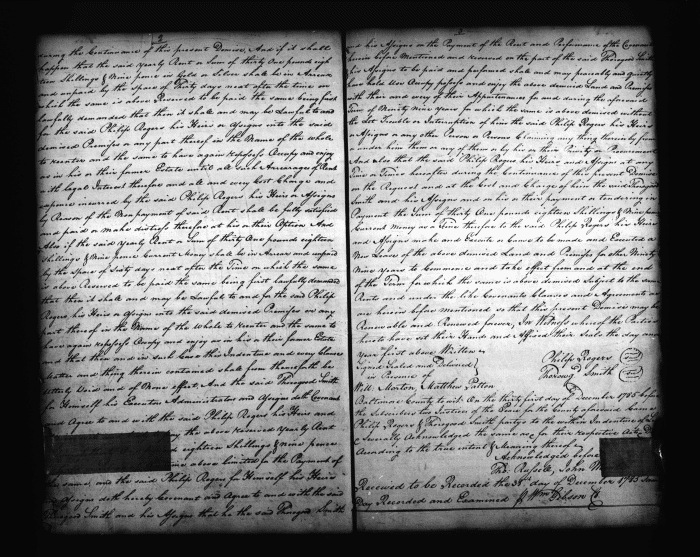 2
during the Continuance of this present Demise, And if it shall
happen that the said Yearly Rent or Sum of thirty One pounds eigh
teen Shillings & Nine pence in Gold or Silver shall be in Arrear
and unpaid by the Space of Thirty days next after the time on
which the same is above Reserved to be paid the same being first
lawfully demanded that then it shall and may be Lawful to and
for the said Philip Rogers his Heirs or Assigns into the said
demised Premises or any part thereof in the Name of the whole
to reenter and the same to have again repossess Occupy and enjoy
as in his or their former Estate until all such Arrearages of Rent
with legal Interest therefor and all and every Cost Charge and
Expence incurred by the said Philip Rogers his Heirs or Assigns
by Reason of the Nonpayment of said Rent shall be fully satisfied
and paid or make distress therefor at his or their Option And
Also if the said Yearly Rent or Sum of thirty One pounds eighteen
Shillings & Nine pence Current Money shall be in Arrear and unpaid
by the Space of Sixty days next after the Time on which the same
is above Reserved to be paid the same being first lawfully demanded
that then it shall and may be Lawful to and for the said Philip
Rogers his Heirs or Assigns into the said demised Premises or any
part thereof in the Name of the Whole to reenter and the same to
have again repossess Occupy and enjoy as in his or their former Estate
and that then and in such Case this Indenture and every Clause
Matter and thing herein contained shall from thenceforth be
utterly Void and of None effect. And the said Thorogood Smith
for Himself his Executors Administrators and Assigns doth Covenant
and Agree to and with the said Philip Rogers his Heirs and
the above reserved Yearly Rent
eighteen Shillings & nine pence
time above limited for the Payment of
the same, and the said Philip Rogers for Himself his Heirs
and Assigns doth hereby Covenant and Agree to and with the said
Thorogood Smith and his Assigns that he the said Thorogood Smith
and his Assigns on the Payment of the Rent and Performance of the Covenants
herein before Mentioned and reserved on the part of the said Thorogood Smith
his Assigns to be paid and performed shall and may peaceably and quietly
have hold Use Occupy possess and enjoy the above demised Land and Premises
with their and every of their Appurtenances for and during the aforesaid
Term of Ninety Nine Years for which the same is above demised without
the Let Trouble or Interruption of him the said Philip Rogers his Heirs
or Assigns or any other Person or Persons Claiming any thing therein by from
or under him them or any of them or by his or their Privity or Procurement
And also that the said Philip Rogers his Heirs and Assigns at any
Time or Times hereafter during the Continuance of this present Demise
at the Request and at the Cost and Charge of him the said Thorogood
Smith and his Assigns and on his or their payment or tendering in
Payment the Sum of thirty One pounds eighteen Shillings & Nine pence
Current Money as a Fine therefor to the said Philip Rogers his Heirs
and Assigns make and Execute or Cause to be made and Executed a
New Lease of the above demised Land and Premises for other Ninety
Nine Years to Commence and take effect from and at the end
of the Term for which the same is above demised Subject to the same
Rent and under the like Covenants Clauses and Agreements as
are herein before mentioned so that this present Demise may be
Renewable and Renewed forever, In Witness whereof the Parties
hereto have set their Hands and Affixed their Seals the day and
Year first above Written
Signed Sealed and Delivered
in Presence of
Philip Rogers
Thorowgd Smith
Will. Morton, Matthew Patton
Baltimore County to wit. On the thirty first day of December 1785 before
the Subscribers two Justices of the Peace for the County aforesaid Came
Philip Rogers & Thorogood Smith partys to the within Indenture and
Severally Acknowledged the same as for their respective Acts &
According to the true intent & Meaning thereof &
Acknowledged before
Thos. Russell, John
Received to be Recorded the 31st day of December 1785 Same
Day Recorded and Examined Wm Gibson Ck